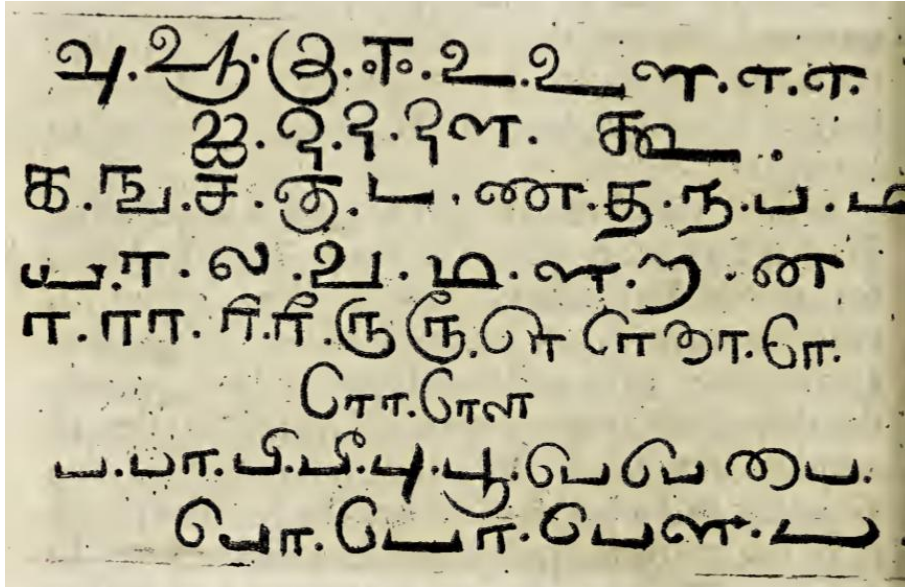 அ.ஆ.இ.ஈ.உ.ஊ.எ.எ.
ஐ.ஒ.ஒ.ஔ. கூ.
க.ங.ச.ஞ.ட.ண.த.ந.ப.ம
ய.ர.ல.வ.ழ.ள.ற.ன
ர.ரா.ரி.ரீ.ரு.ரூ.ரெ ரெ ரை.
ரொ.ரௌ
ப.பா.பி.பீ.பு.பூ.பெ பெ பை.
பொ.பொ.பௌ.